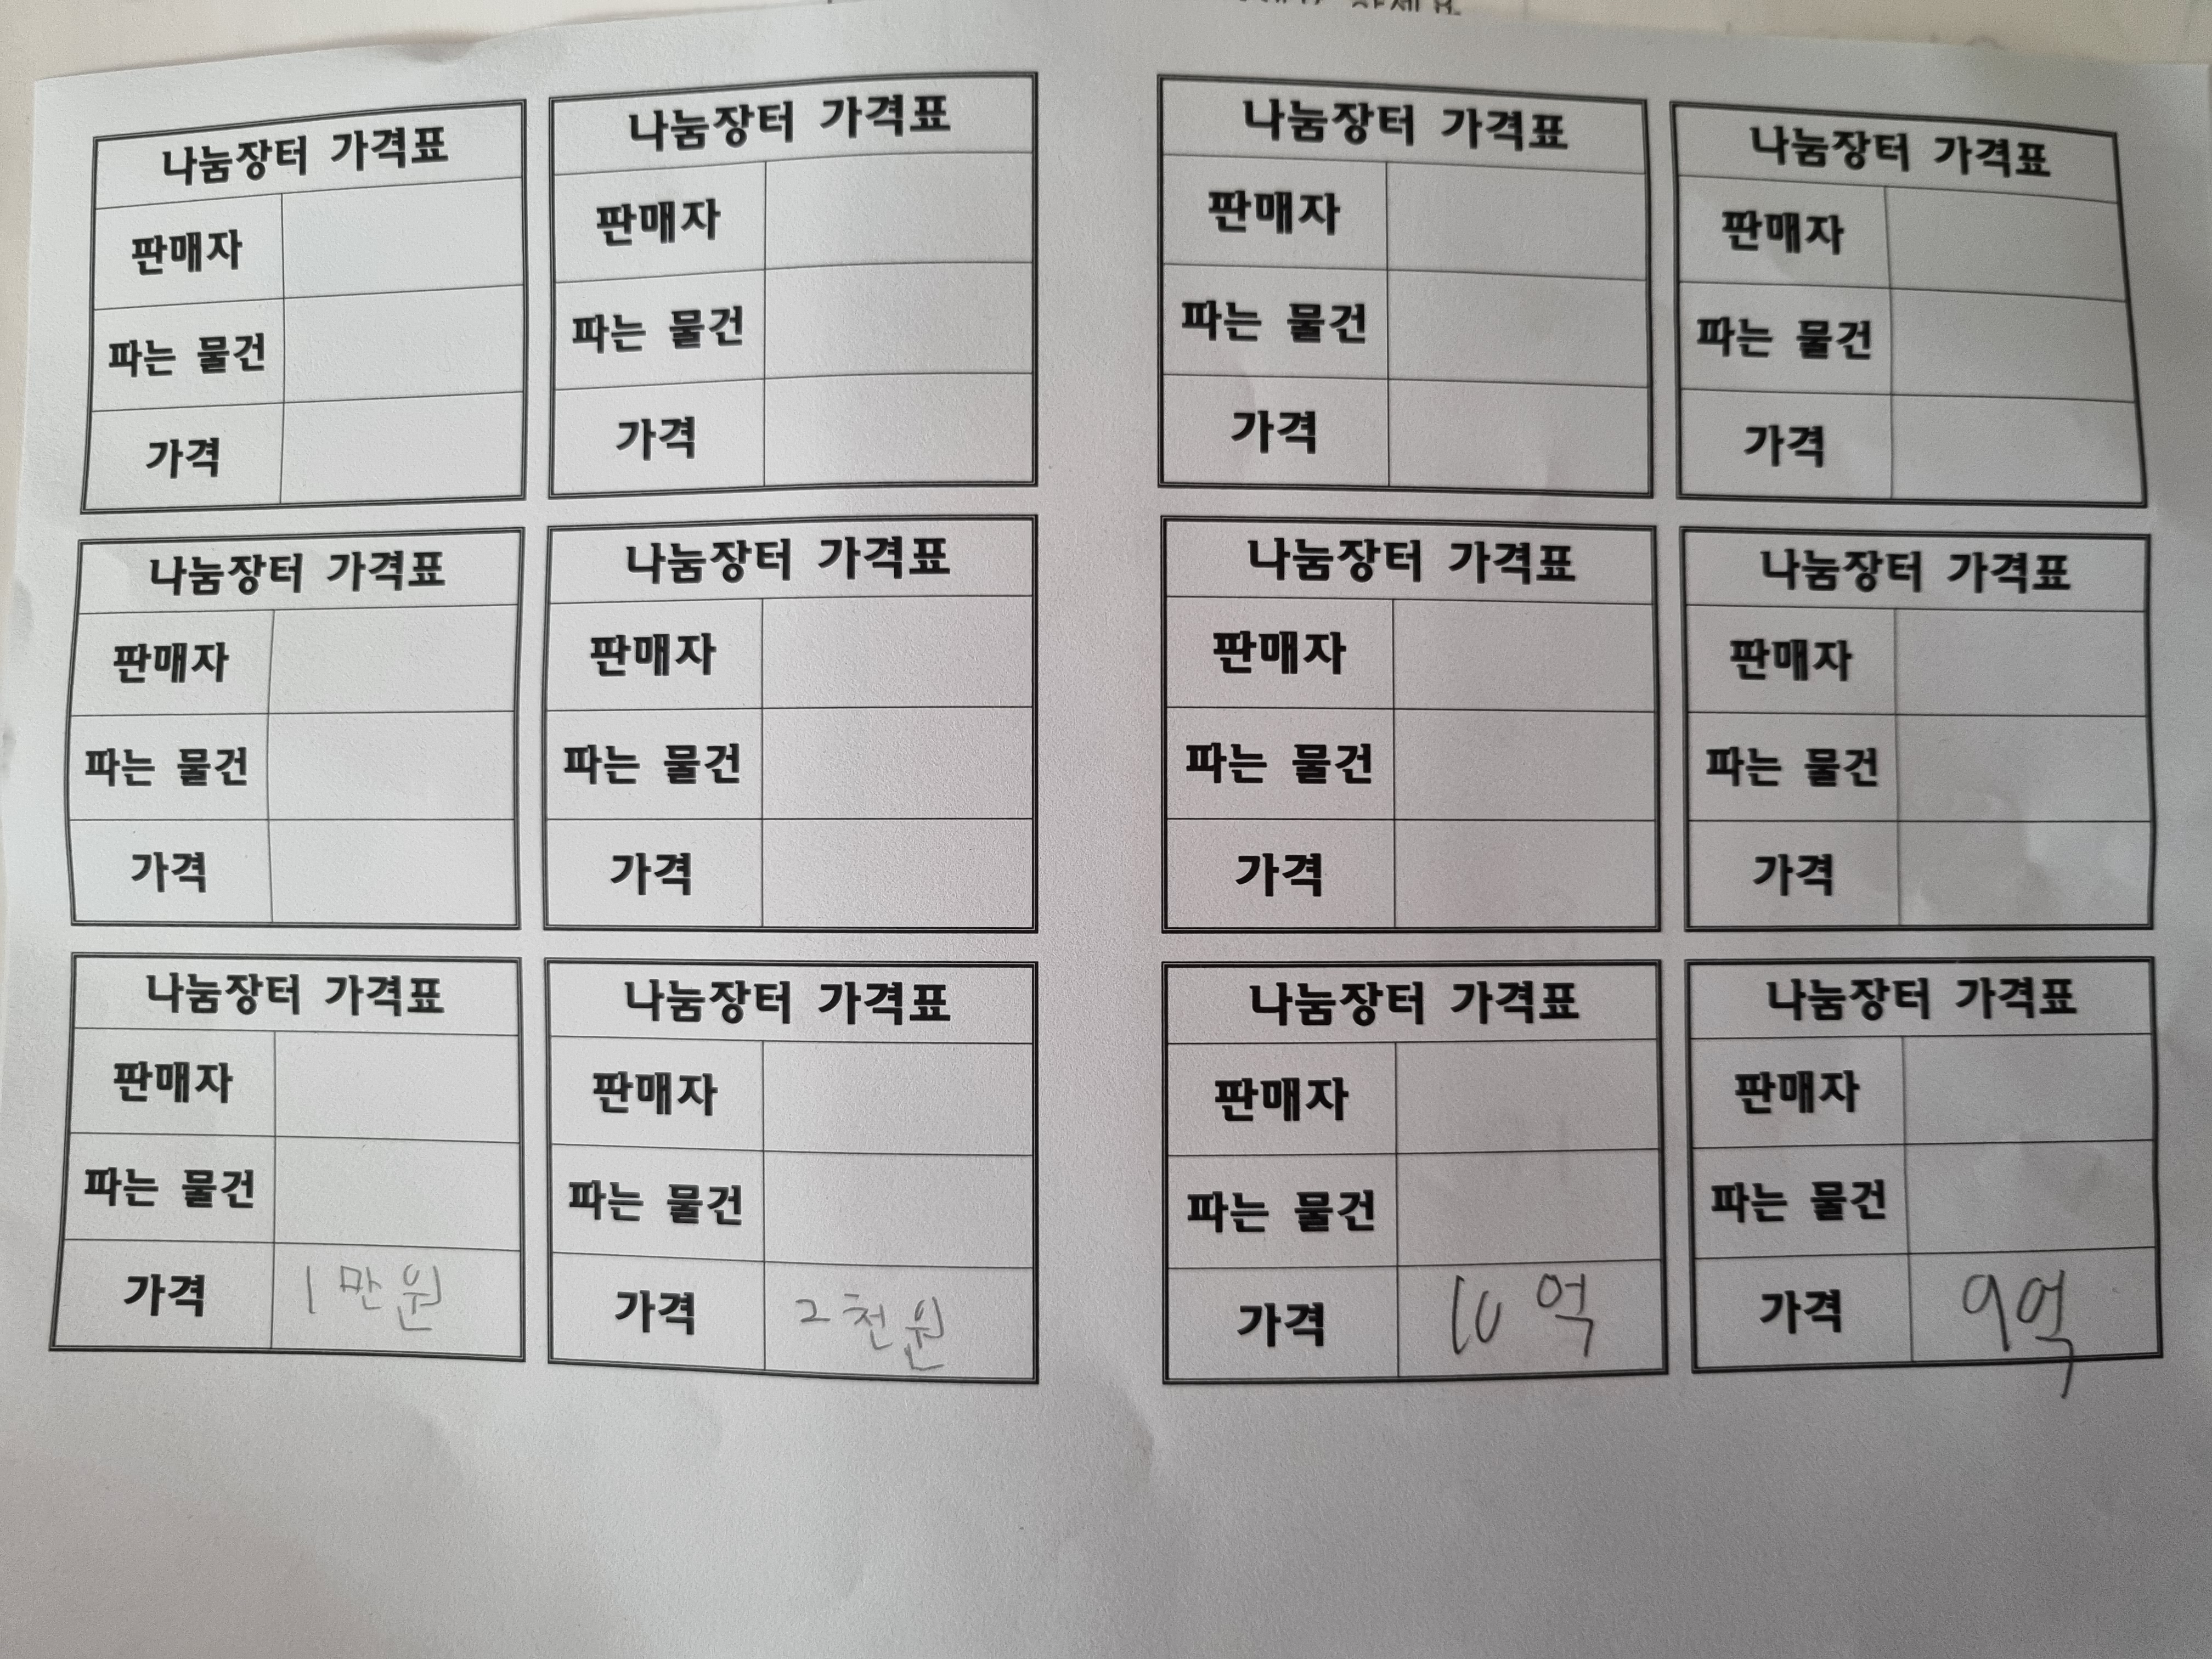 나눔장터 가격표
판매자
파는 물건
가격
나눔장터 가격표
판매자
파는 물건
가격
나눔장터 가격표
판매자
파는 물건
가격
나눔장터 가격표
판매자
파는 물건
가격
나눔장터 가격표
판매자
파는 물건
가격
나눔장터 가격표
판매자
파는 물건
가격
나눔장터 가격표
판매자
파는 물건
가격
나눔장터 가격표
판매자
파는 물건
가격
나눔장터 가격표
판매자
파는 물건
가격 1만원
나눔장터 가격표
판매자
파는 물건
가격 2천원
나눔장터 가격표
판매자
파는 물건
가격 10억
나눔장터 가격표
판매자
파는 물건
가격 9억